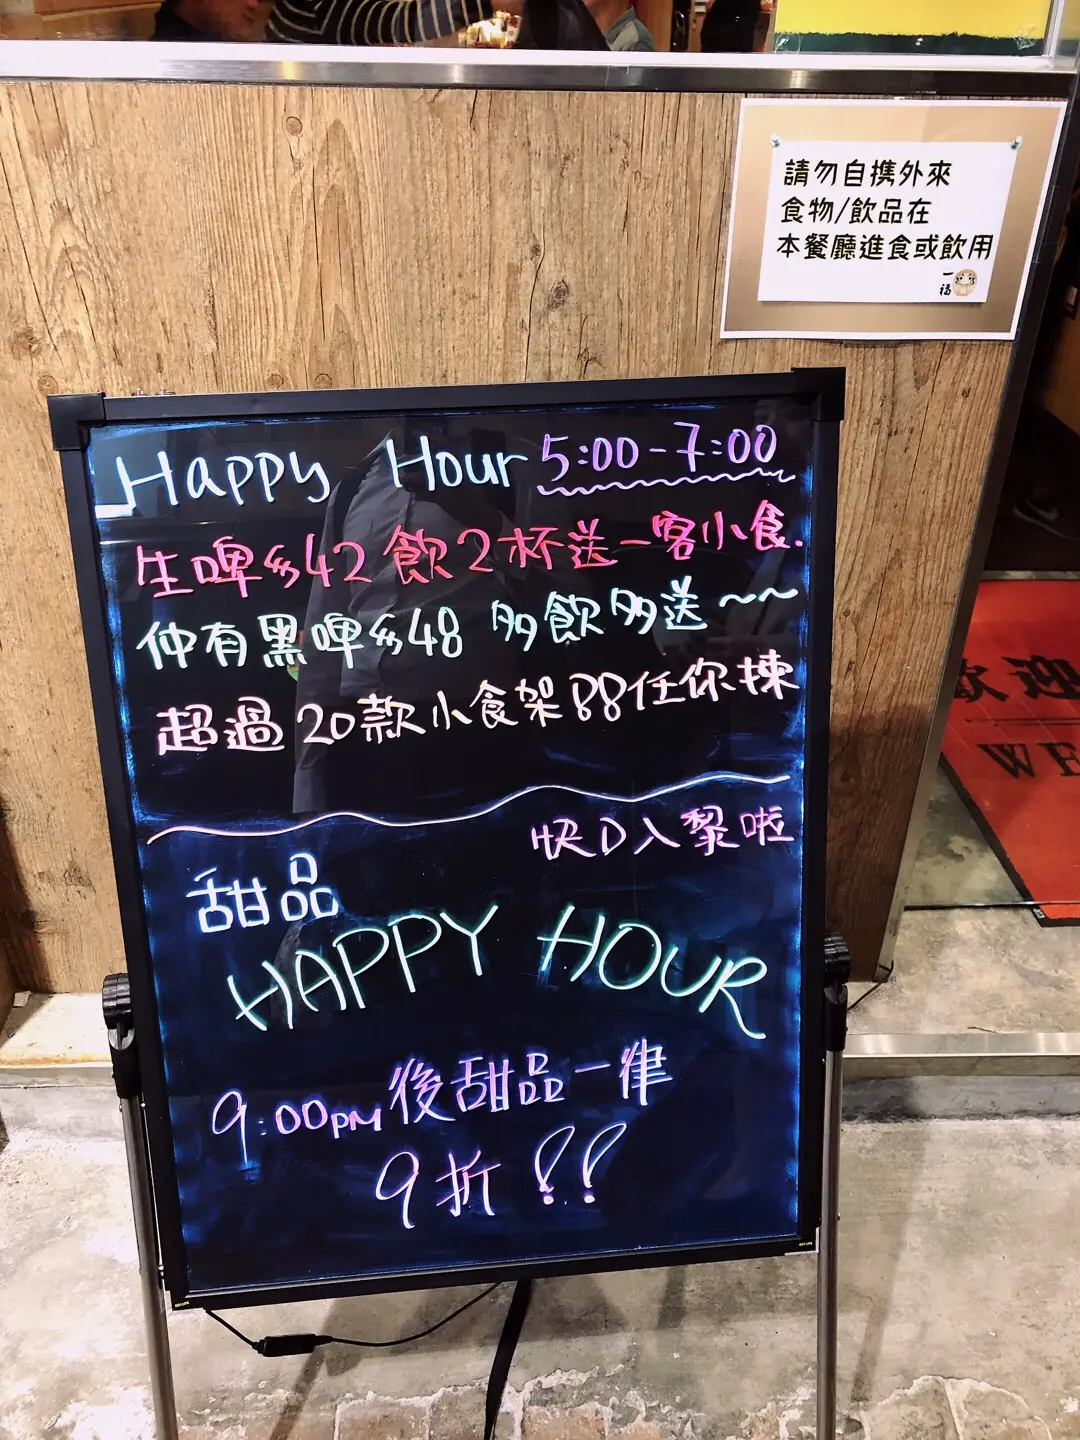 請勿自携外來
食物/飲品在
本餐廳進食或飲用
一福
Happy Hour 5:00-7:00
生啤$42 飲2杯送一客小食.
仲有黑啤$48 多飲多送~~
超過20款小食架 88任你揀
快D入黎啦
甜品
HAPPY HOUR
9:00pm後甜品一律
9折!!
歡迎
WE